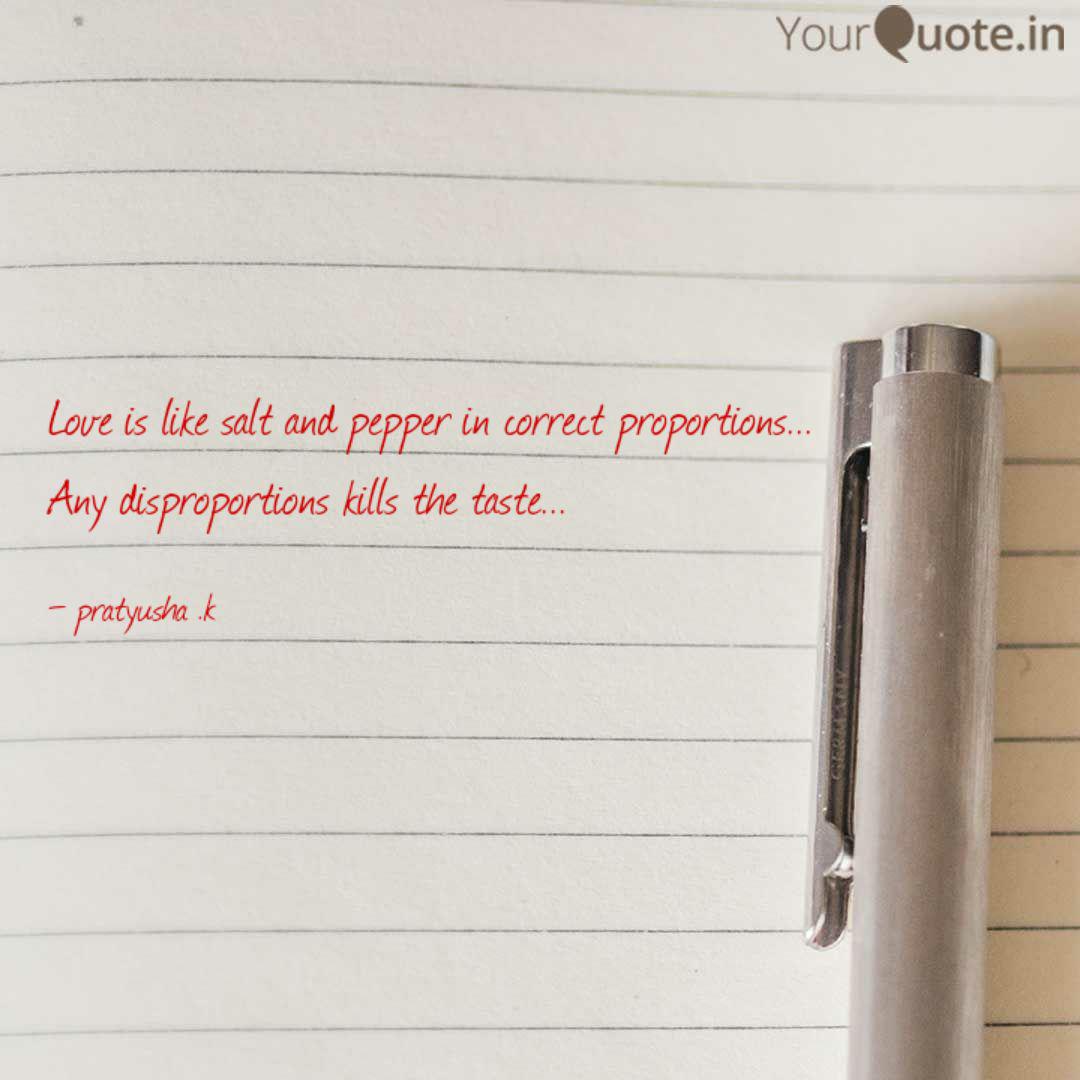 YourQuote.in
Love is like salt and pepper in correct proportions...
Any disproportions kills the taste...
- pratyusha .k
GERMANY